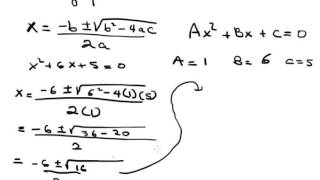 x = (-b ± √(b² - 4ac)) / 2a
Ax² + Bx + C = 0
x² + 6x + 5 = 0
A = 1 B = 6 C = 5
x = (-6 ± √(6² - 4(1)(5))) / 2(1)
= (-6 ± √(36 - 20)) / 2
= -6 ± √16